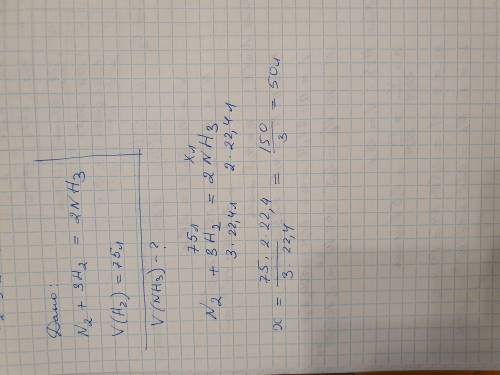 Дано:
N2 + 3H2 = 2NH3
V(H2) = 75л
V(NH3) - ?
75л хл
N2 + 3H2 = 2NH3
3·22,4л 2·22,4л
x = 75·2·22,4 / 3·22,4 = 150 / 3 = 50л